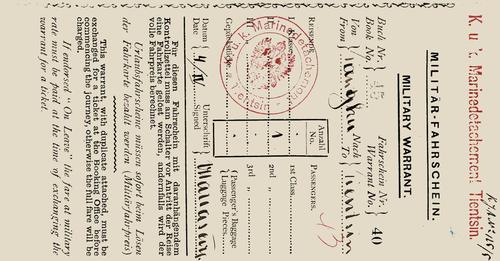 K. u. K. Marinedetachement Tientsin.
MILITÄR-FAHRSCHEIN.
MILITARY WARRANT.
Buch Nr. } 15 Fahrschein Nr. } 40
Book No. } Warrant No. }
Von } Nach }
From } To } Tientsin
Reisende Anzahl No. PASSENGERS.
1st Class
2nd „
3rd „
Gepäckstücke { Passenger's Baggage
{ Luggage Pieces
K. u. k. Marinedetachement
Tientsin
Datum } Unterschrift }
Date } Signed }
Für diesen Fahrschein mit daranhängendem
Kontrollzettel muss am Schalter vor Antritt der Reise
eine Fahrkarte gelöst werden, andernfalls wird der
volle Fahrpreis berechnet.
Urlaubsfahrscheine müssen sofort beim Lösen
der Fahrkarte bezahlt werden (Militärfahrpreis)
This warrant, with duplicate attached, must be
exchanged for a ticket at the Booking Office, before
commencing the journey, otherwise the full fare will be
charged.
If endorsed "On Leave" the fare at military
rate must be paid at the time of exchanging the
warrant for a ticket.